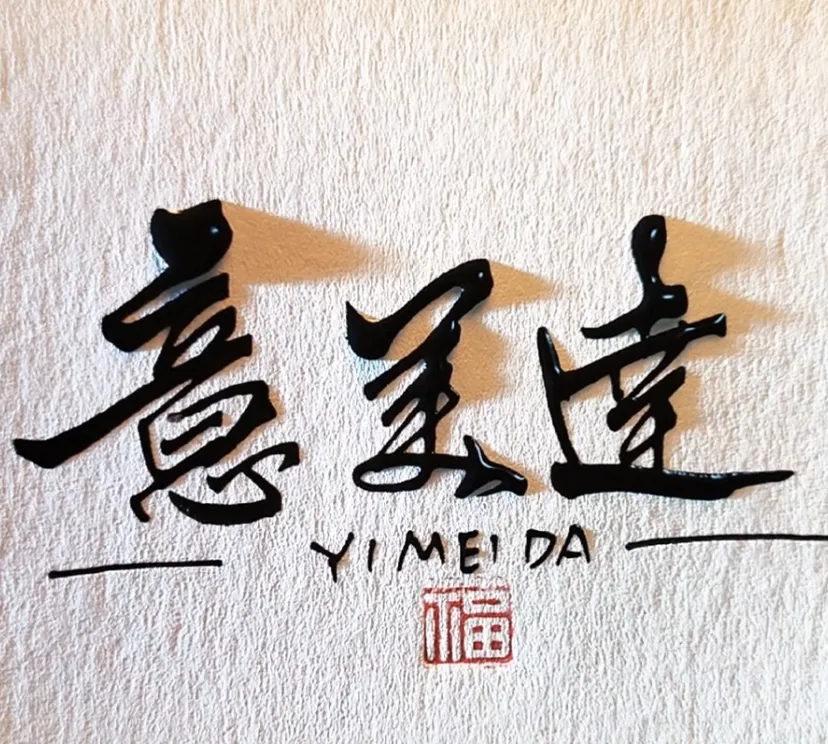 意美達
YI MEI DA
福